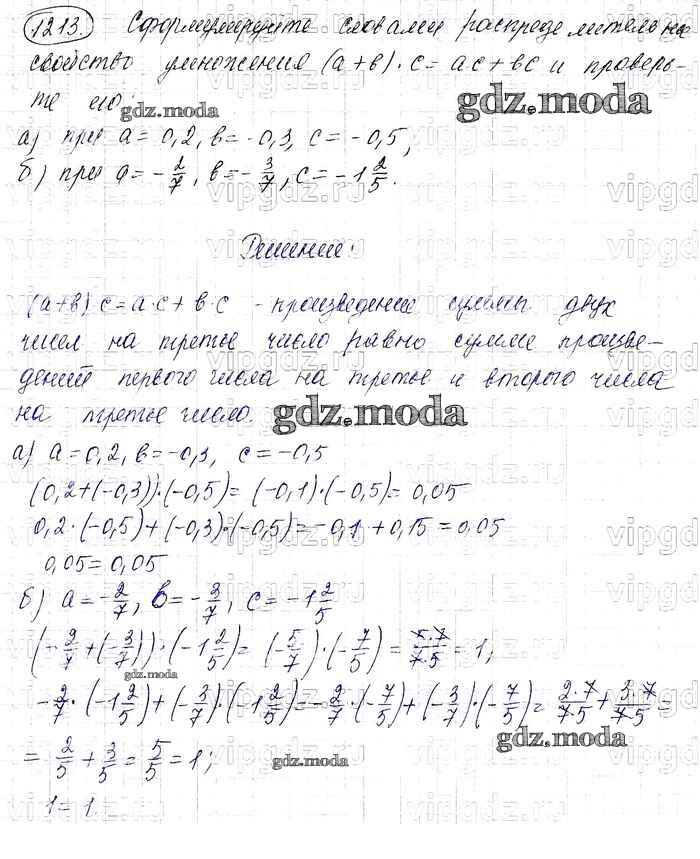 1213. Сформулируйте словами распределительное
свойство умножения (a+b)·c=ac+bc и проверь-
те его:
gdz.moda
gdz.moda
а) при a=0,2, b=-0,3, c=-0,5,
б) при a=-2/7, b=-3/7, c=-1 2/5.
Решение:
(a+b)c=a·c+b·c - произведение суммы двух
чисел на третье число равно сумме произве-
дений первого числа на третье и второго числа
на третье число.
gdz.moda
а) a=0,2, b=-0,3, c=-0,5
(0,2+(-0,3))·(-0,5)=(-0,1)·(-0,5)=0,05
0,2·(-0,5)+(-0,3)·(-0,5)=-0,1+0,15=0,05
0,05=0,05
б) a=-2/7, b=-3/7, c=-1 2/5
(-2/7+(-3/7))·(-1 2/5)=(-5/7)·(-7/5)=5·7/7·5=1;
gdz.moda
-2/7·(-1 2/5)+(-3/7)·(-1 2/5)=-2/7·(-7/5)+(-3/7)·(-7/5)=2·7/7·5+3·7/7·5=
=2/5+3/5=5/5=1;
gdz.moda
gdz.moda
1=1.